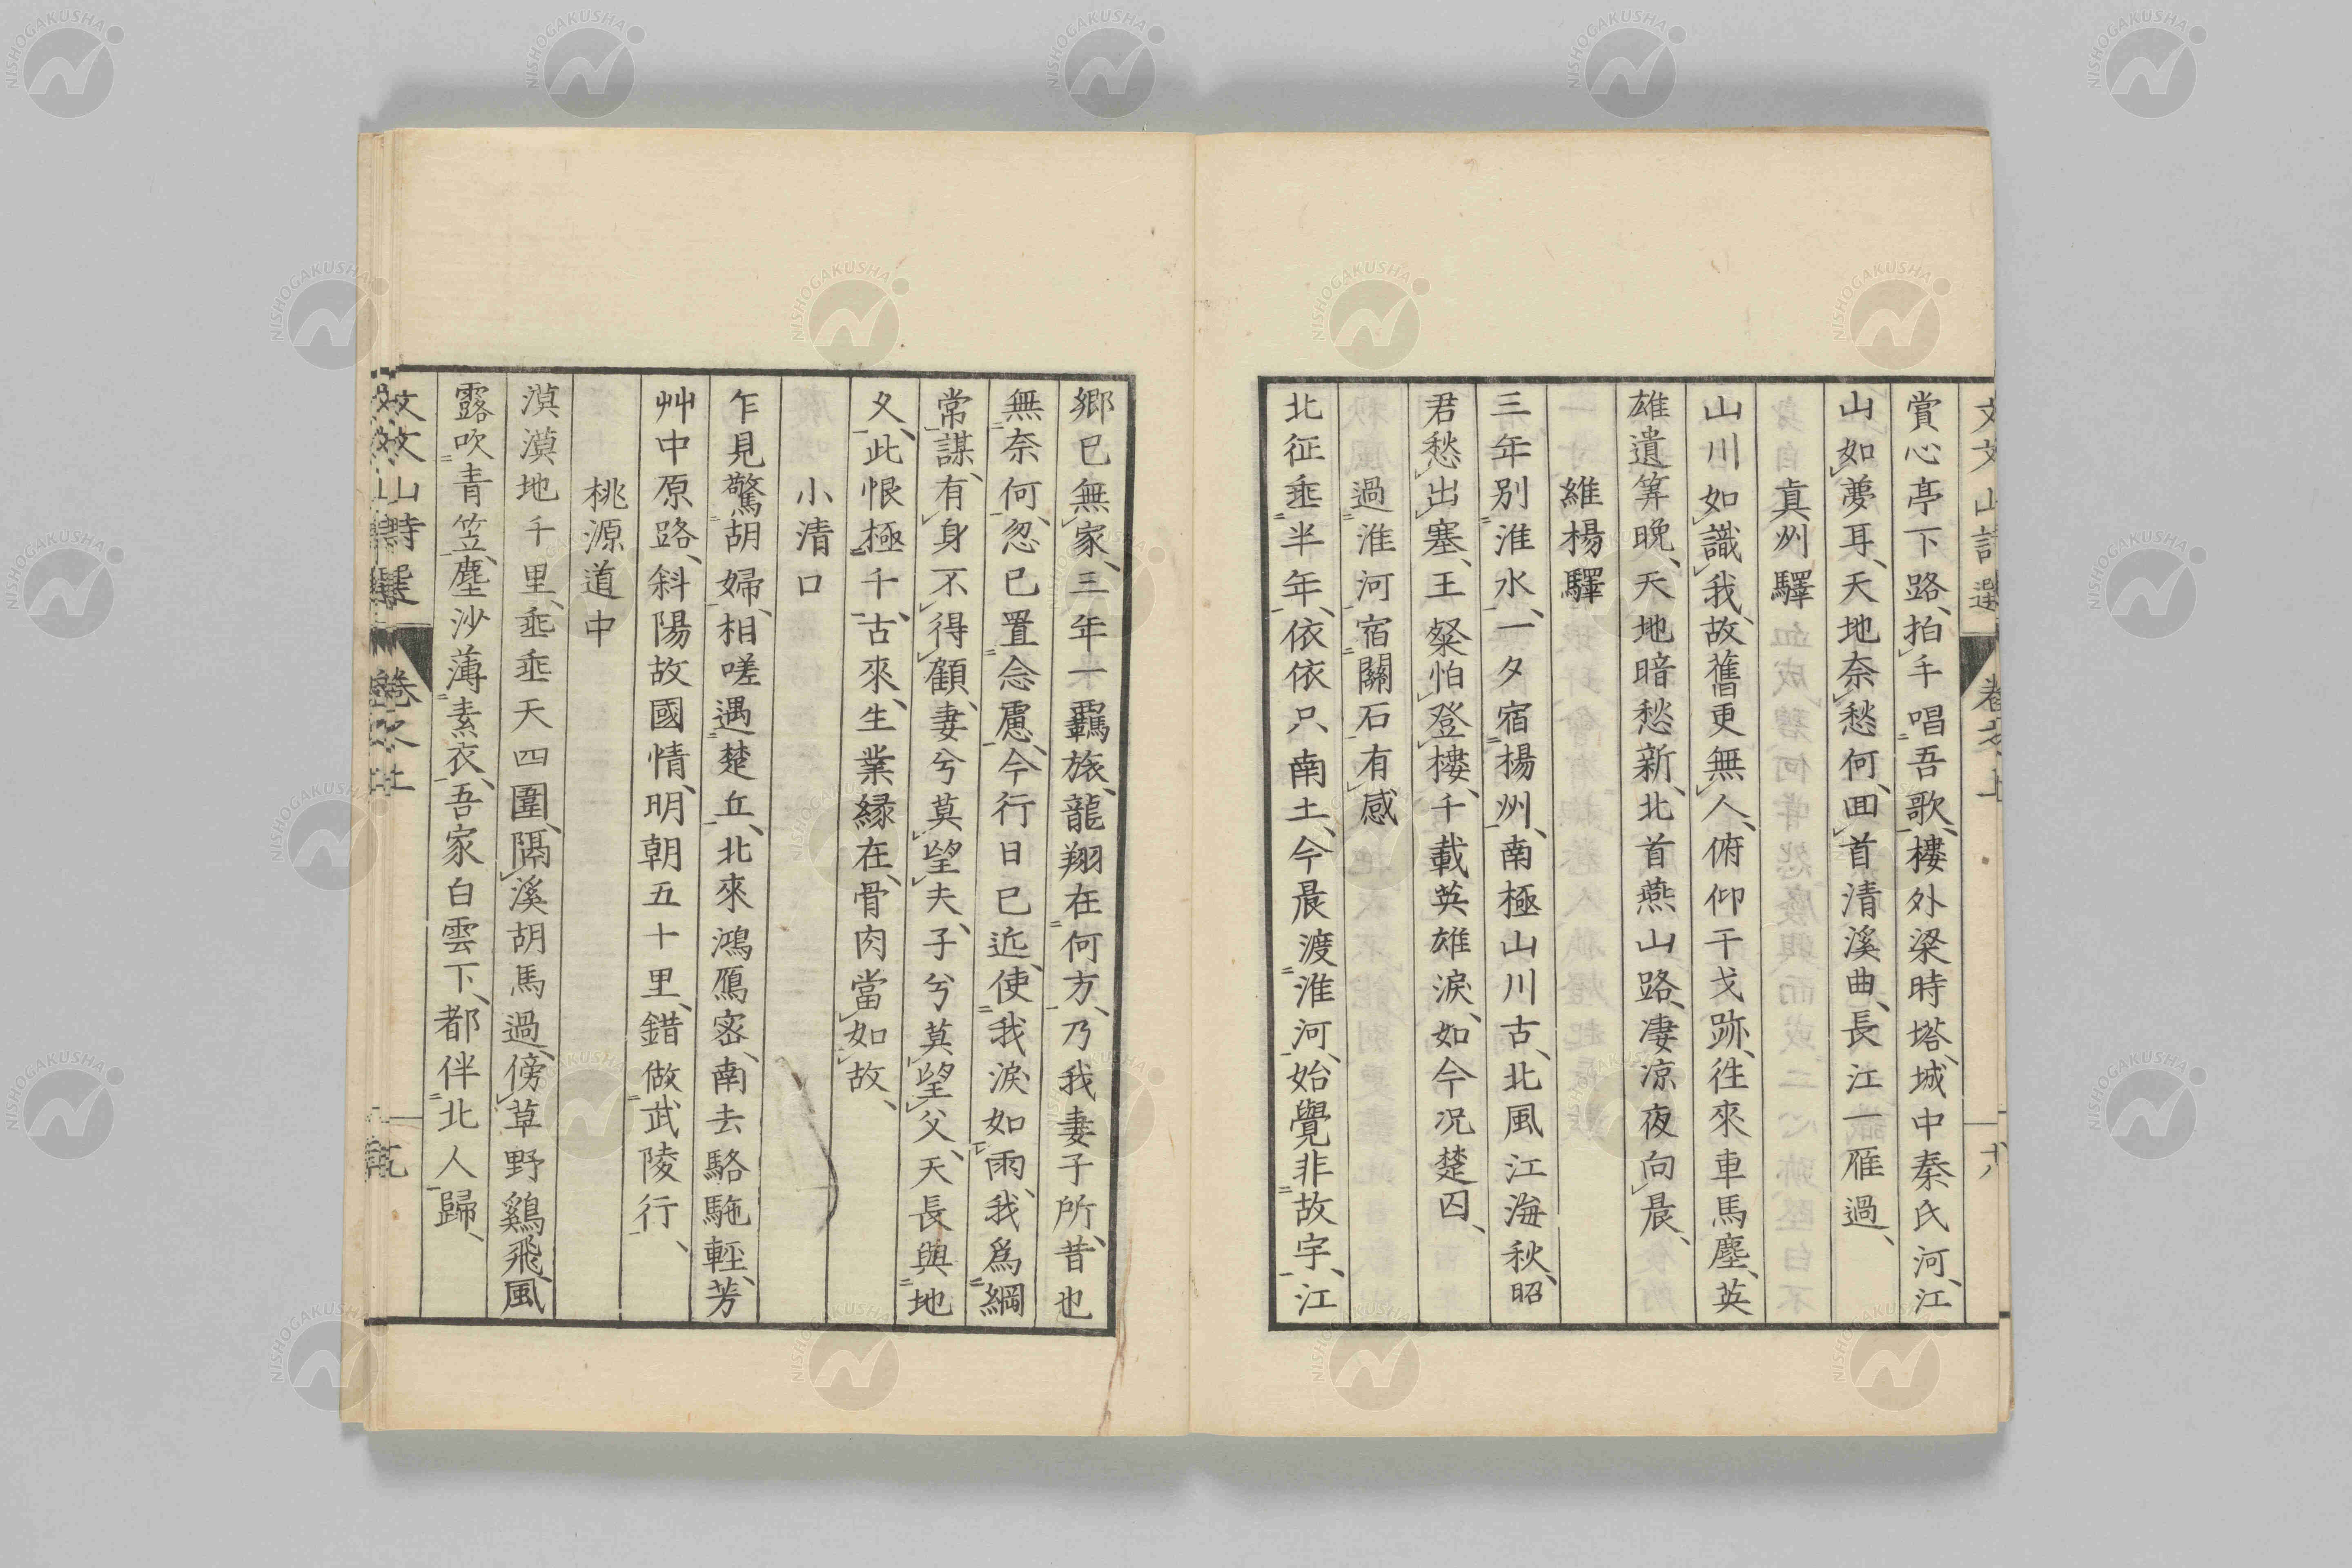 文文山詩選 卷之上 十六
賞心亭下路、拍手唱吾歌、樓外梁時塔、城中秦氏河、江
山如夢耳、天地奈愁何、回首清溪曲、長江一雁過、
眞州驛
山川如識我、故舊更無人、俯仰干戈跡、徃來車馬塵、英
雄遺算晚、天地暗愁新、北首燕山路、凄凉夜向晨、
維楊驛
三年別淮水、一夕宿楊州、南極山川古、北風江海秋、昭
君愁出塞、王粲怕登樓、千載英雄淚、如今况楚囚、
過淮河宿關石有感
北征垂半年、依依只南土、今晨渡淮河、始覺非故宇、江
鄉已無家、三年一羈旅、龍翔在何方、乃我妻子所、昔也
無奈何、忽已置念慮、今行日已近、使我淚如雨、我爲綱
常謀、有身不得顧、妻兮莫望夫、子兮莫望父、天長與地
久、此恨極千古、來生業緣在、骨肉當如故、
小清口
乍見驚胡婦、相嗟遇楚丘、北來鴻鴈密、南去駱駞輕、芳
艸中原路、斜陽故國情、明朝五十里、錯做武陵行、
桃源道中
漠漠地千里、垂垂天四圍、隔溪胡馬過、傍草野鷄飛、風
露吹青笠、塵沙薄素衣、吾家白雲下、都伴北人歸、
文文山詩選 卷之上
NISHOGAKUSHA